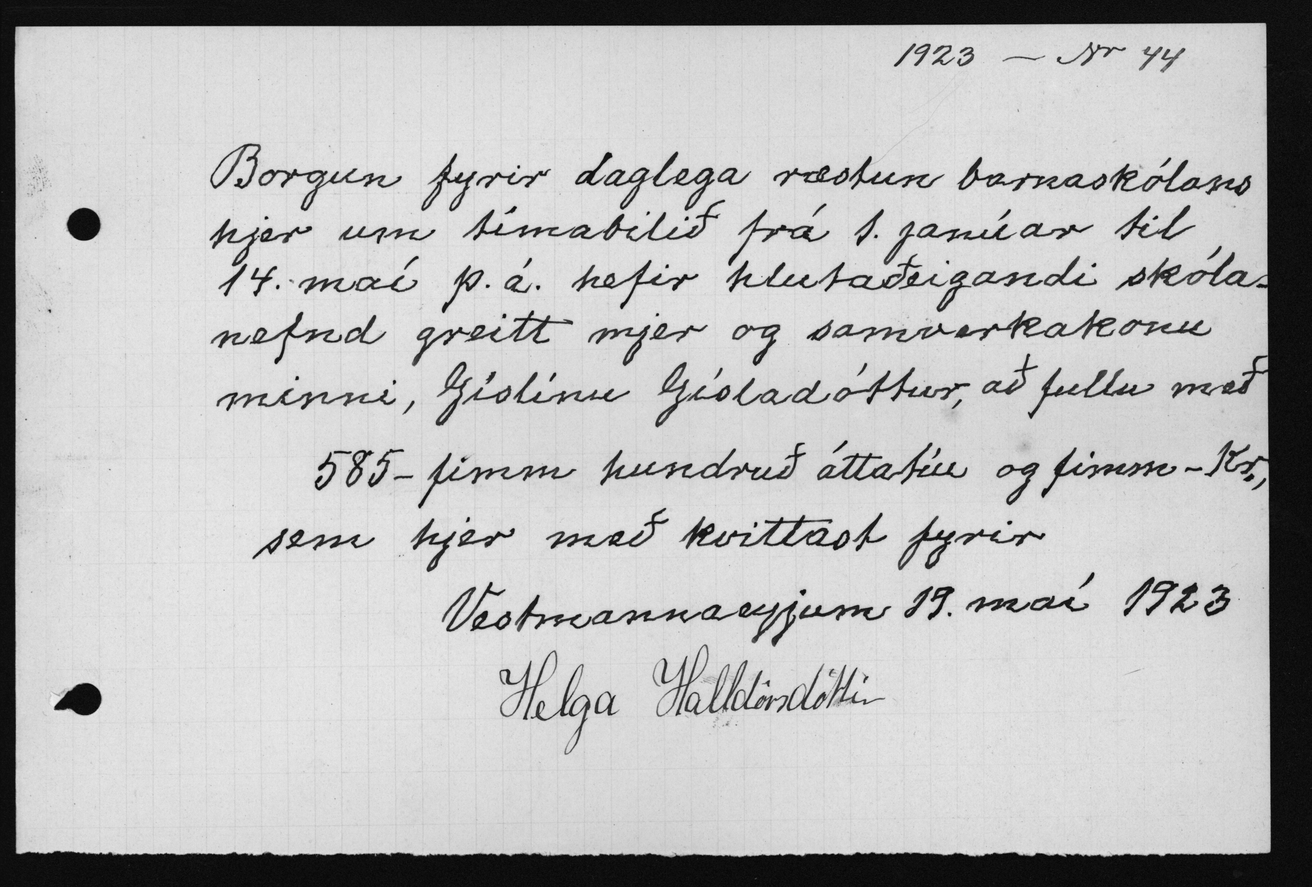 1923 — Nr 44
Borgun fyrir daglega ræstun barnaskólans
hjer um tímabilið frá 1. janúar til
14. maí þ.á. hefir hlutaðeigandi skóla-
nefnd greitt mjer og samverkakonu
minni, Gíslínu Gísladóttur, að fullu með
585 – fimm hundruð áttatíu og fimm – Kr.,
sem hjer með kvittast fyrir
Vestmannaeyjum 19. maí 1923
Helga Halldórsdóttir